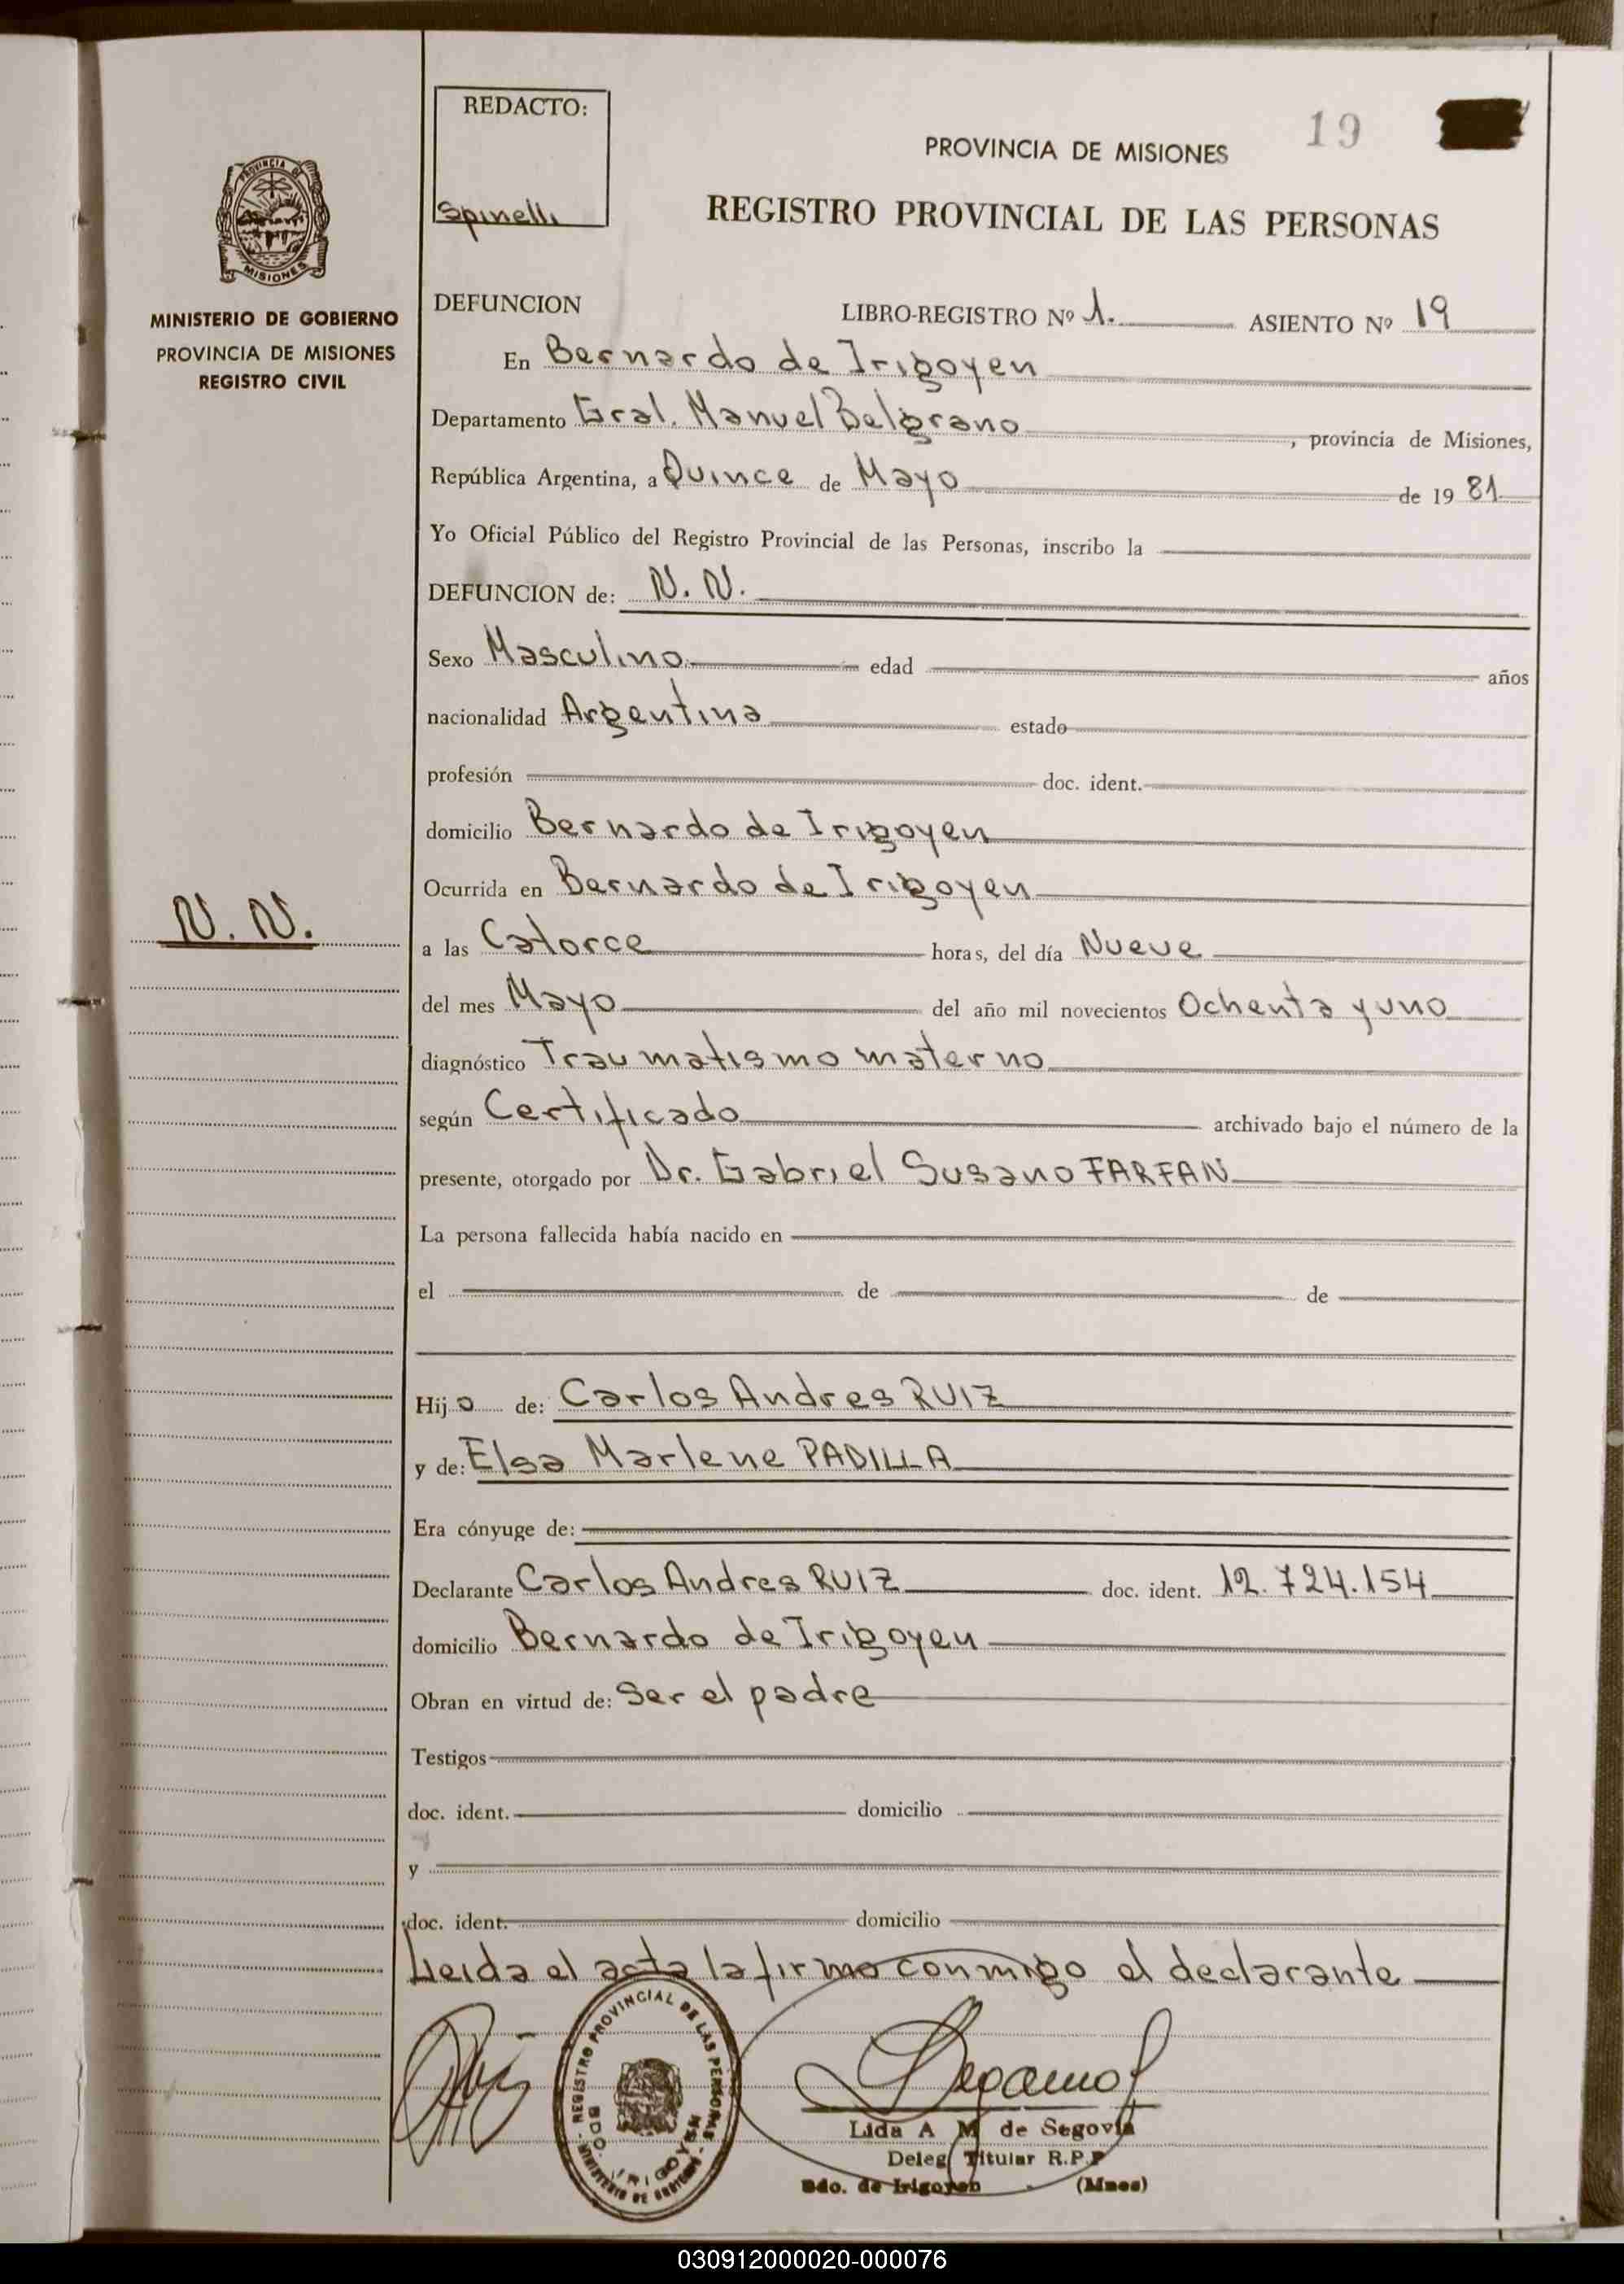 REDACTO:
Spinelli
19
PROVINCIA DE MISIONES
REGISTRO PROVINCIAL DE LAS PERSONAS
PROVINCIA DE
MISIONES
MINISTERIO DE GOBIERNO
PROVINCIA DE MISIONES
REGISTRO CIVIL
DEFUNCION LIBRO-REGISTRO Nº 1. ASIENTO Nº 19
En Bernardo de Irigoyen
Departamento Gral. Manuel Belgrano, provincia de Misiones,
República Argentina, a Quince de Mayo de 19 81
Yo Oficial Público del Registro Provincial de las Personas, inscribo la
DEFUNCION de: N. N.
Sexo Masculino edad años
nacionalidad Argentina estado
profesión doc. ident.
domicilio Bernardo de Irigoyen
Ocurrida en Bernardo de Irigoyen
N. N.
a las Catorce horas, del día Nueve
del mes Mayo del año mil novecientos Ochenta y uno
diagnóstico Traumatismo materno
según Certificado archivado bajo el número de la
presente, otorgado por Dr. Gabriel Susano FARFAN
La persona fallecida había nacido en
el de de
Hijo de: Carlos Andres RUIZ
y de: Elsa Marlene PADILLA
Era cónyuge de:
Declarante Carlos Andres RUIZ doc. ident. 12.724.154
domicilio Bernardo de Irigoyen
Obran en virtud de: Ser el padre
Testigos
doc. ident. domicilio
y
doc. ident. domicilio
Leida el acta la firma conmigo el declarante
REGISTRO PROVINCIAL DE LAS PERSONAS
BDO. IRIGOYEN
MINISTERIO DE GOBIERNO
Lida A M de Segovia
Deleg Titular R.P.P
Bdo. de Irigoyen (Mnes)
030912000020-000076